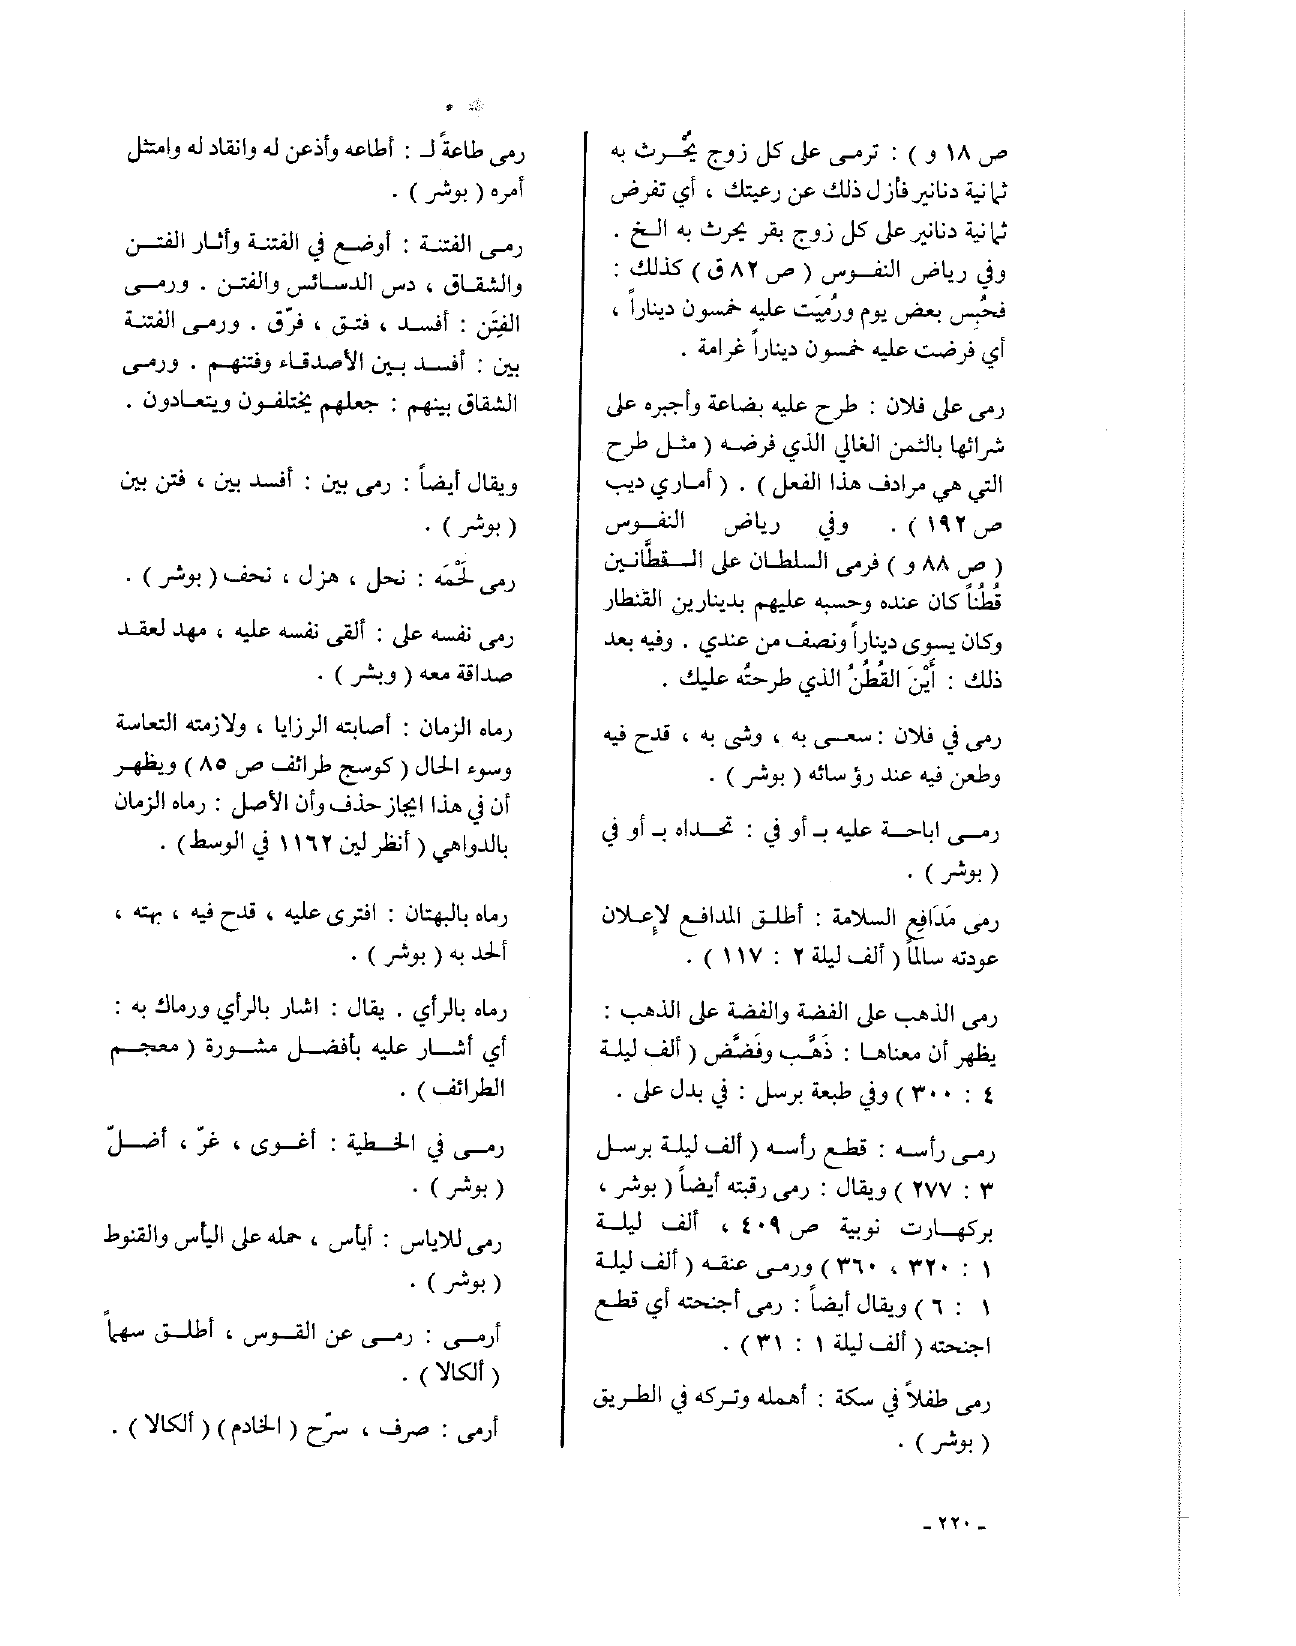 ص ١٨ و ) : ترمى على كل زوج يُحْرث به
ثمانية دنانير فأزل ذلك عن رعيتك ، أي تفرض
ثمانية دنانير على كل زوج بقر يحرث به الخ .
وفي رياض النفوس ( ص ٨٢ ق ) كذلك :
فحُبس بعض يوم ورُمِيَت عليه خمسون ديناراً ،
أي فرضت عليه خمسون ديناراً غرامة .
رمى على فلان : طرح عليه بضاعة وأجبره على
شرائها بالثمن الغالي الذي فرضه ( مثل طرح
التي هي مرادف هذا الفعل ) . ( أماري ديب
ص ١٩٢ ) . وفي رياض النفوس
( ص ٨٨ و ) فرمى السلطان على القطَّانين
قُطُناً كان عنده وحسبه عليهم بدينارين القنطار
وكان يسوى ديناراً ونصف من عندي . وفيه بعد
ذلك : أَيْنَ القُطُنُ الذي طرحتُه عليك .
رمى في فلان : سعى به ، وشى به ، قدح فيه
وطعن فيه عند رؤسائه ( بوشر ) .
رمى اباحة عليه بـ أو في : تحداه بـ أو في
( بوشر ) .
رمى مَدَافِع السلامة : أطلق المدافع لإعلان
عودته سالماً ( ألف ليلة ٢ : ١١٧ ) .
رمى الذهب على الفضة والفضة على الذهب :
يظهر أن معناها : ذَهَّب وفَضَّض ( ألف ليلة
٤ : ٣٠٠ ) وفي طبعة برسل : في بدل على .
رمى رأسه : قطع رأسه ( ألف ليلة برسل
٣ : ٢٧٧ ) ويقال : رمى رقبته أيضاً ( بوشر ،
بركهارت نوبية ص ٤٠٩ ، ألف ليلة
١ : ٣٢٠ ، ٣٦٠ ) ورمى عنقه ( ألف ليلة
١ : ٦ ) ويقال أيضاً : رمى أجنحته أي قطع
اجنحته ( ألف ليلة ١ : ٣١ ) .
رمى طفلاً في سكة : أهمله وتركه في الطريق
( بوشر ) .
رمى طاعةً لـ : أطاعه وأذعن له وانقاد له وامتثل
أمره ( بوشر ) .
رمى الفتنة : أوضع في الفتنة وأثار الفتن
والشقاق ، دس الدسائس والفتن . ورمى
الفِتَن : أفسد ، فتق ، فرّق . ورمى الفتنة
بين : أفسد بين الأصدقاء وفتنهم . ورمى
الشقاق بينهم : جعلهم يختلفون ويتعادون .
ويقال أيضاً : رمى بين : أفسد بين ، فتن بين
( بوشر ) .
رمى لَحْمَه : نحل ، هزل ، نحف ( بوشر ) .
رمى نفسه على : ألقى نفسه عليه ، مهد لعقد
صداقة معه ( وبشر ) .
رماه الزمان : أصابته الرزايا ، ولازمته التعاسة
وسوء الحال ( كوسج طرائف ص ٨٥ ) ويظهر
أن في هذا ايجاز حذف وأن الأصل : رماه الزمان
بالدواهي ( أنظر لين ١١٦٢ في الوسط ) .
رماه بالبهتان : افترى عليه ، قدح فيه ، بهته ،
ألحد به ( بوشر ) .
رماه بالرأي . يقال : اشار بالرأي ورماك به :
أي أشار عليه بأفضل مشورة ( معجم
الطرائف ) .
رمى في الخطية : أغوى ، غرّ ، أضلّ
( بوشر ) .
رمى للاياس : أيأس ، حمله على اليأس والقنوط
( بوشر ) .
أرمى : رمى عن القوس ، أطلق سهماً
( ألكالا ) .
أرمى : صرف ، سرّح ( الخادم ) ( ألكالا ) .
ـ ٢٢٠ ـ